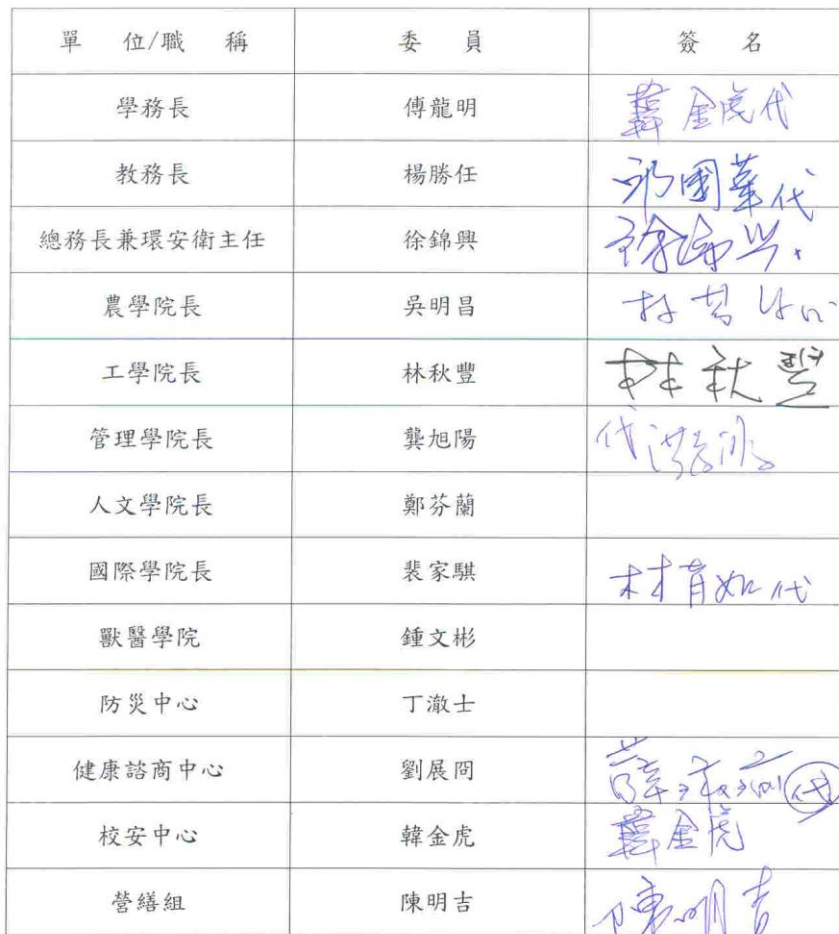 單 位/職 稱 委 員 簽 名
學務長 傅龍明 韓金虎代
教務長 楊勝任 國華代
總務長兼環安衛主任 徐錦興 徐錦興
農學院長 吳明昌
工學院長 林秋豐 林秋豐
管理學院長 龔旭陽 代
人文學院長 鄭芬蘭
國際學院長 裴家騏 林育如代
獸醫學院 鍾文彬
防災中心 丁澈士
健康諮商中心 劉展冏 代
校安中心 韓金虎 韓金虎
營繕組 陳明吉 陳明吉